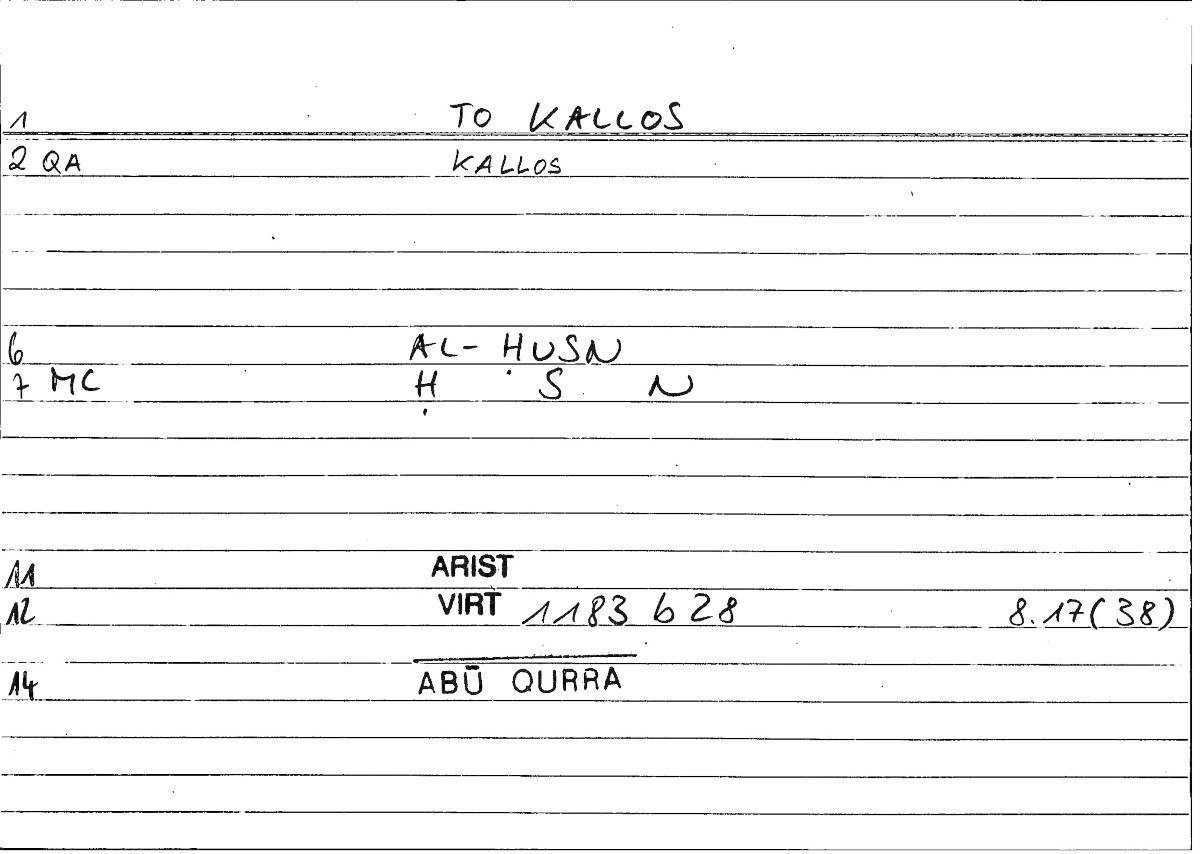 1 TO KALLOS
2 QA KALLOS
6 AL-ḤUSN
7 MC Ḥ S N
11 ARIST
12 VIRT 1183 b 28 8.17(38)
14 ABŪ QURRA